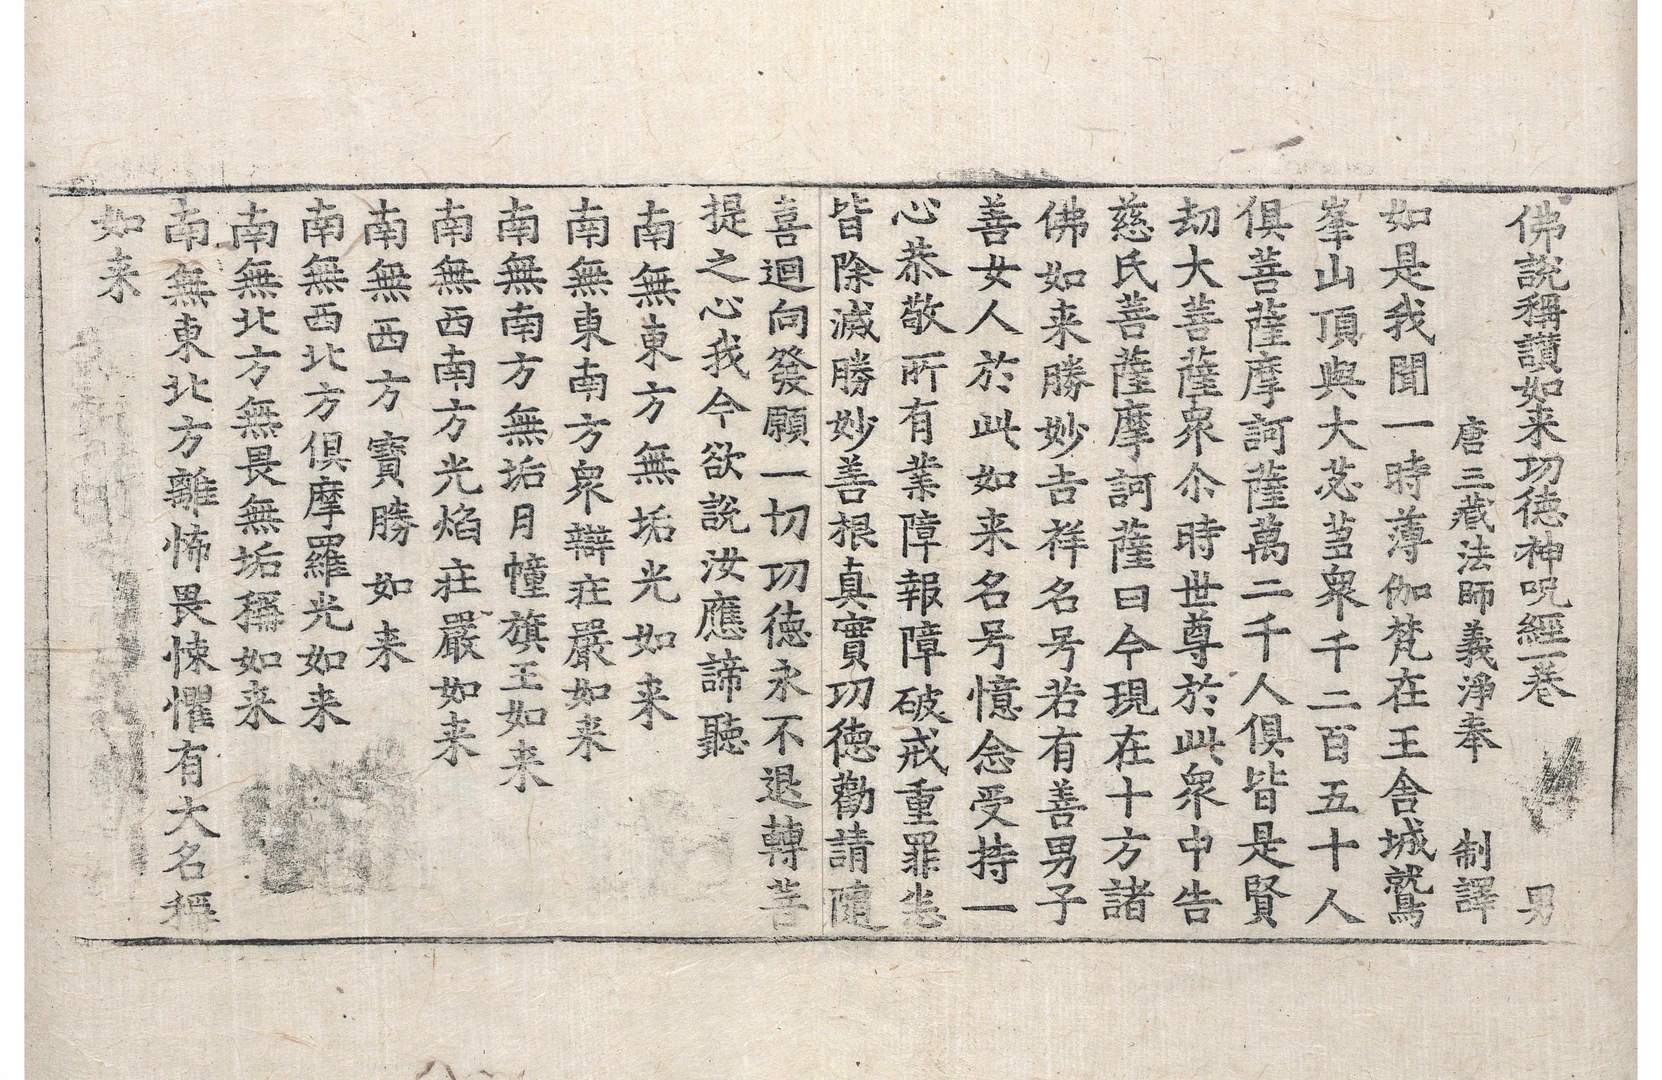 佛說稱讃如来功德神呪經一卷 男
唐三藏法師義淨奉 制譯
如是我聞一時薄伽梵在王舍城鷲
峯山頂與大苾芻衆千二百五十人
俱菩薩摩訶薩萬二千人俱皆是賢
劫大菩薩衆尒時世尊於此衆中告
慈氏菩薩摩訶薩曰今現在十方諸
佛如来勝妙吉祥名号若有善男子
善女人於此如来名号憶念受持一
心恭敬所有業障報障破戒重罪悉
皆除滅勝妙善根真實功德勸請隨
喜迴向發願一切功德永不退轉菩
提之心我今欲說汝應諦聽
南無東方無垢光如来
南無東南方衆辯莊嚴如来
南無南方無垢月幢旗王如来
南無西南方光焰莊嚴如来
南無西方寶勝如来
南無西北方俱摩羅光如来
南無北方無畏無垢稱如来
南無東北方離怖畏悚懼有大名稱
如来